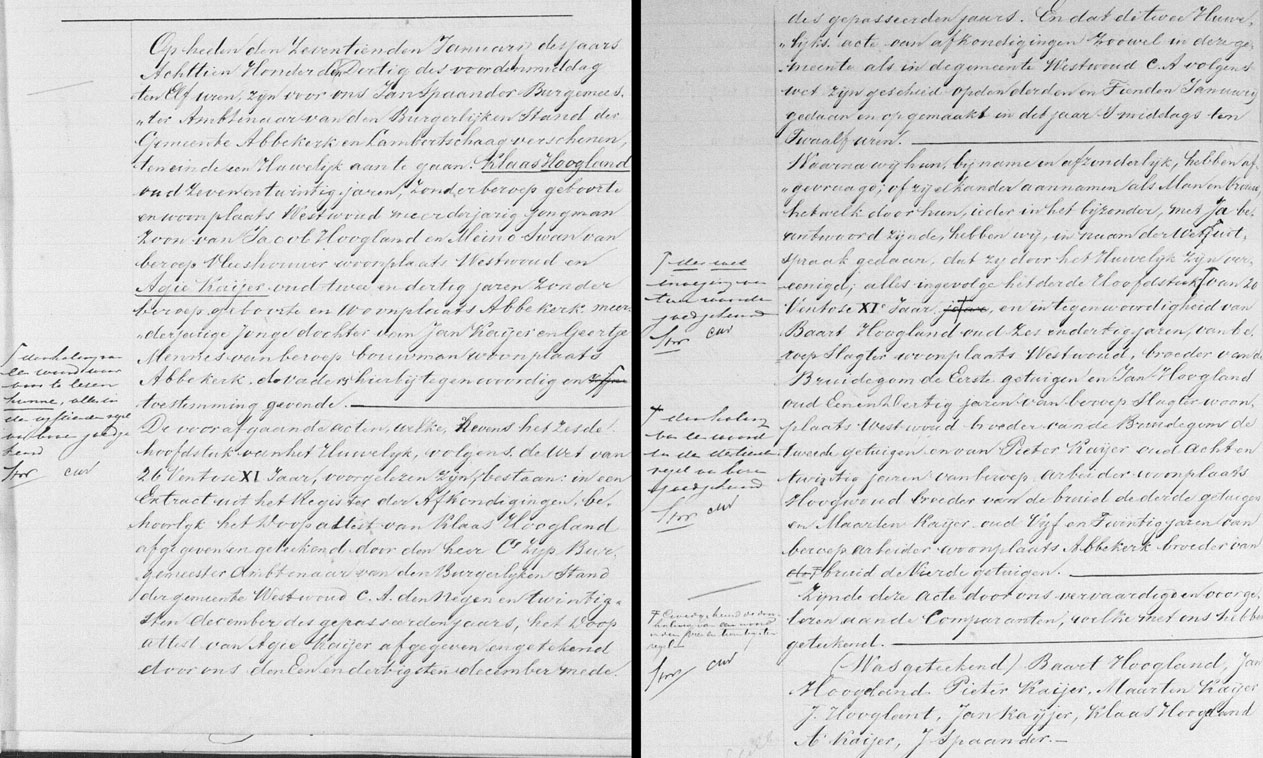 Op heden den Zeventienden Januari des jaars
Achttien Honderd en Dertig des voordenmiddag
ten Elf uren, zijn voor ons Jan Spaander Burgemees-
„ter Ambtenaar van den Burgerlijken Stand der
Gemeente Abbekerk en Lambertschaag verschenen,
ten einde een Huwelijk aan te gaan. Klaas Hoogland
oud Zeven en twintig jaren, Zonder beroep geboorte
en woonplaats Westwoud meerderjarig jongman
Zoon van Jacob Hoogland en Meino Swan van
beroep Vleeshouwer woonplaats Westwoud en
Agie Kaijer oud twee en dertig jaren Zonder
beroep geboorte en woonplaats Abbekerk meer-
„derjarige jonge dochter van Jan Kaijer en Geertje
Mennes van beroep bouwman woonplaats
Abbekerk. de vaders hierbij tegenwoordig en
toestemming gevende.
De voorafgaande acten, welke, nevens het zesde
hoofdstuk van het Huwelijk, volgens de Wet van
26 Ventose XI Jaar, voorgelezen zijn, bestaan: in een
Extract uit het Register der Afkondigingen, be-
hoorlijk het Doop attest van Klaas Hoogland
afgegeven en getekend door den heer Cs Zijp Bur-
gemeester Ambtenaar van den Burgerlijken Stand
der gemeente Westwoud C. A. den Negen en twintig-
sten december des gepasseerden jaars, het Doop
attest van Agie Kaijer afgegeven en getekend
door ons den Een en dertigsten december mede
een woord voor
te lezen
goedge
keurd
Spr
des gepasseerden jaars. En dat de twee Huwe-
„lijks acte van afkondigingen Zoowel in deze ge-
meente als in de gemeente Westwoud C. A volgens
wet zijn geschied op den derden en Tienden Januarij
gedaan en opgemaakt in dit jaar S middags ten
Twaalf uren.
Waarna wij hun, bij name en afzonderlijk, hebben af-
„gevraagd; of zij elkander aannamen als Man en Vrouw
hetwelk door hun, ieder in het bijzonder, met Ja be-
antwoord zijnde, hebben wij, in naam der Wet, uit-
spraak gedaan, dat zij door het Huwelijk Zijn ver-
eenigd, alles ingevolge het derde Hoofdstuk van 20
Ventose XI Jaar, en in tegenwoordigheid van
Baart Hoogland oud Zes en dertig jaren, van be-
roep Slagter woonplaats Westwoud, broeder van de
Bruidegom de Eerste getuigen en Jan Hoogland
oud Een en Dertig jaren van beroep Slagter woon-
plaats Westwoud broeder van de Bruidegom de
tweede getuigen en van Pieter Kaijer oud Acht en
twintig jaren van beroep arbeider woonplaats
Hoogwoud broeder van de bruid de derde getuigen
en Maarten Kaijer oud Vijf en Twintig jaren van
beroep arbeider woonplaats Abbekerk broeder van
bruid de Vierde getuigen.
Zijnde deze Acte door ons vervaardigd en voorge-
lezen aan de Comparanten, welke met ons hebben
getekend.
(Was getekend) Baart Hoogland, Jan
Hoogland, Pieter Kaijer, Maarten Kaijer
J. Hooglant, Jan Kayjer, Klaas Hoogland
A Kaijer, J Spaander.
goedgekeurd
Spr
goedgekeurd
Spr
Spr